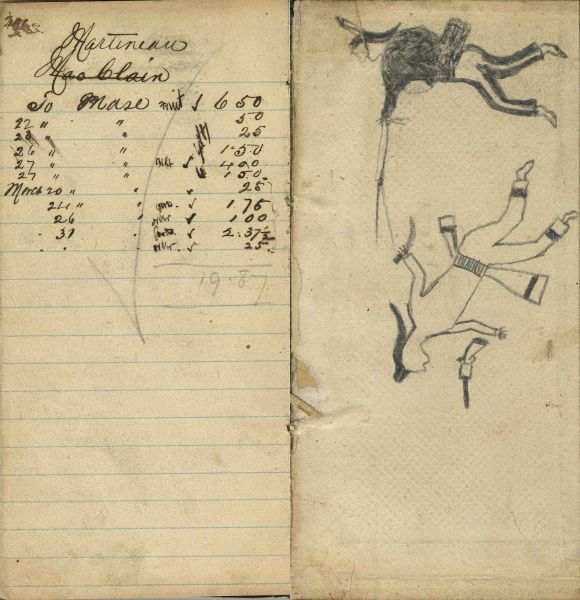 Martineau
Has Claim
To Mdse √ 6 50
22 " " 50
23 " " 25
26 " " 1 50
27 " " √ 4 00
27 " " 1 50
March 20 " " " 25
24 " " √ 1 75
26 " √ 1 00
31 " √ 2.37½
" " √ 25
19.87